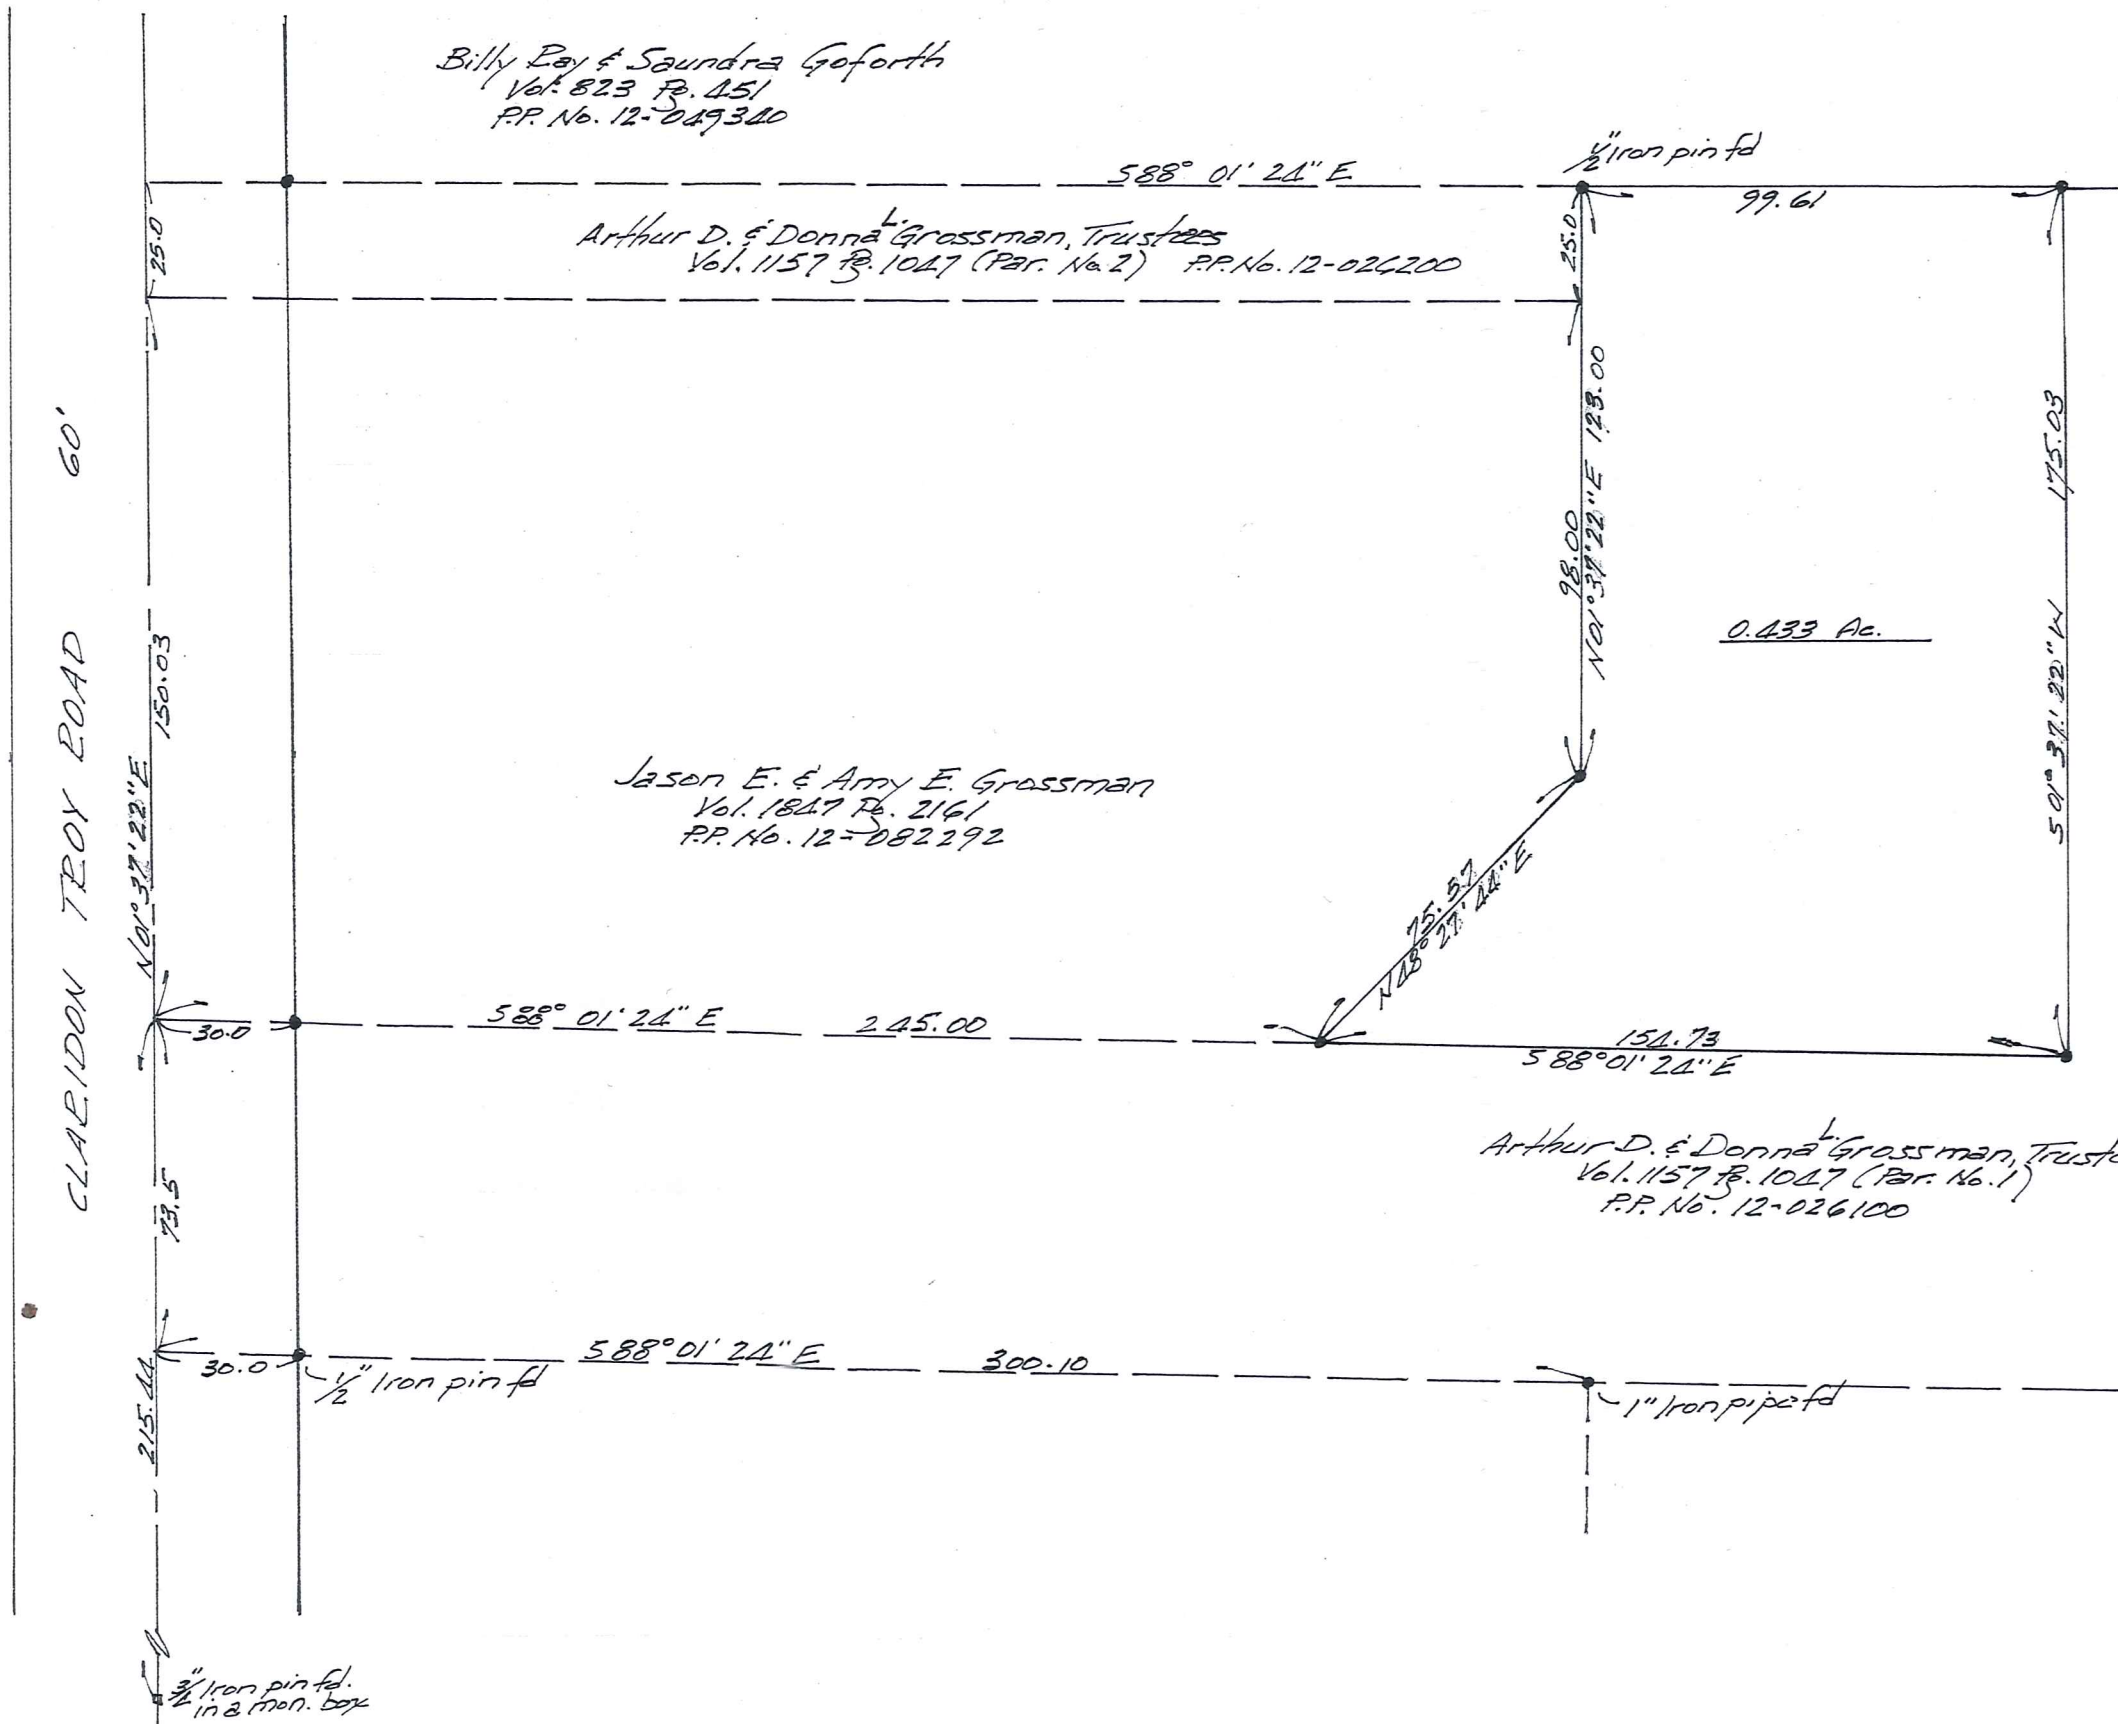 Billy Ray & Saundra Goforth
Vol. 823 Pg. 451
P.P. No. 12-049340
1/2" Iron pin fd
S88° 01' 24" E
99.61
25.0
Arthur D. & Donna L. Grossman, Trustees
Vol. 1157 Pg. 1047 (Par. No. 2) P.P. No. 12-026200
25.0
CLARIDON TROY ROAD 60'
N01° 37' 22" E
150.03
98.00
N01° 37' 22" E 123.00
0.433 Ac.
S01° 37' 22" W 175.03
Jason E. & Amy E. Grossman
Vol. 1847 Pg. 2161
P.P. No. 12-082292
75.57
N48° 27' 44" E
30.0
S88° 01' 24" E 245.00
154.73
S88° 01' 24" E
Arthur D. & Donna L. Grossman, Truste
Vol. 1157 Pg. 1047 (Par. No. 1)
P.P. No. 12-026100
73.5
30.0
S88° 01' 24" E 300.10
1/2" Iron pin fd
1" Iron pipe fd
215.44
3/4" Iron pin fd.
in a mon. box